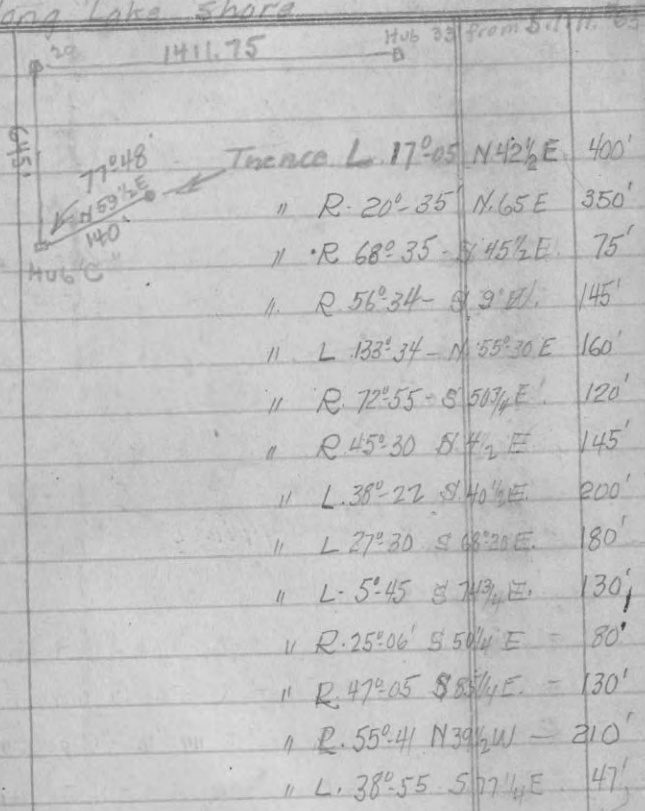 Long Lake Shore
29 1411.75 Hub 33 from
645'
77°48'
N 59½ E
140'
Hub "C"
Thence L. 17°-05 N.42½ E. 400'
" R. 20°-35' N.65 E 350'
" R 68°-35 - S 45½ E. 75'
" R. 56°-34 - S 9° W. 145'
" L. 133°-34 - N. 55°-30 E 160'
" R. 72°-55 - S 50¾ E. 120'
" R 45°-30 S 4½ E 145'
" L. 38°-22 S 40½ E. 200'
" L 27°-30 S 68°-20 E. 180'
" L - 5°-45 S 74¾ E. 130'
" R. 25°-06' S 50¼ E = 80'
" R. 47°-05 E. - 130'
" R. 55°-41 N 39½ W - 210'
" L. 38°-55 S 77¼ E 47'